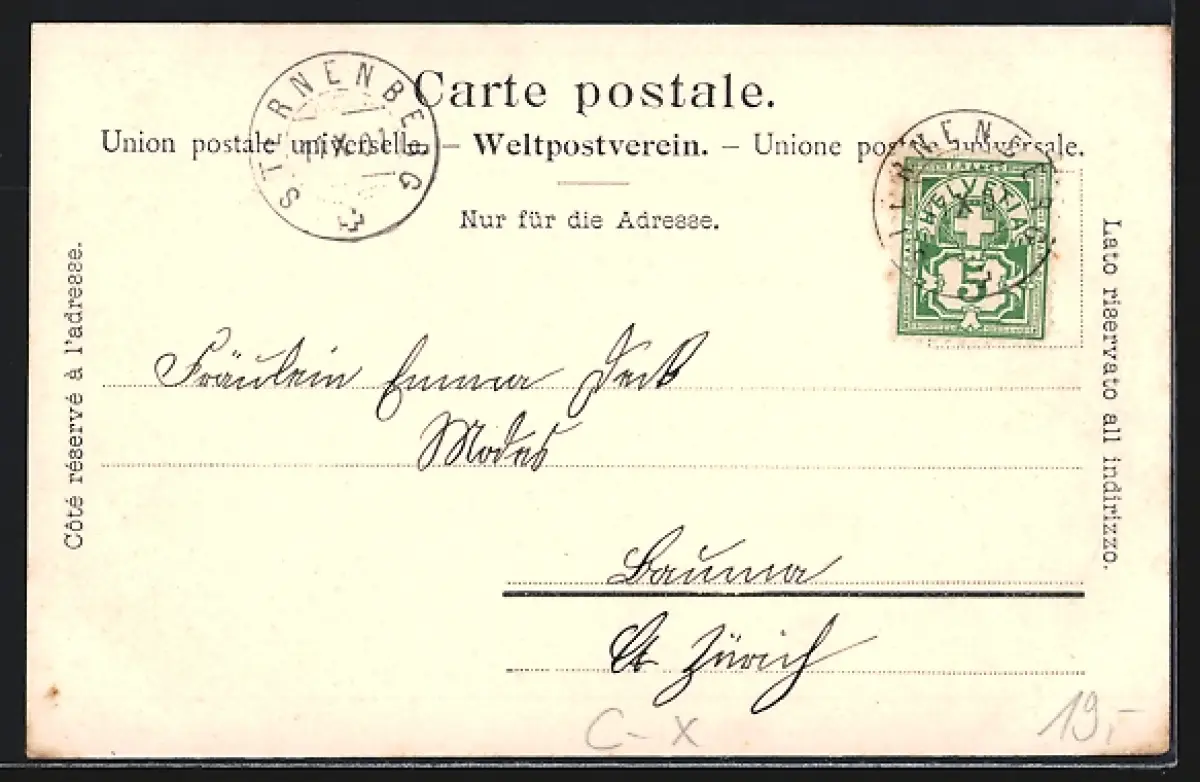 Carte postale.
Union postale universelle. – Weltpostverein. – Unione postale universale.
Nur für die Adresse.
STERNENBERG
X.01
STERNENBERG
X
FRANCO
HELVETIA
5
Côté réservé à l'adresse.
Lato riservato all indirizzo.
Fräulein Emma
Modes
Bauma
Ct Zürich
C-X
19,-